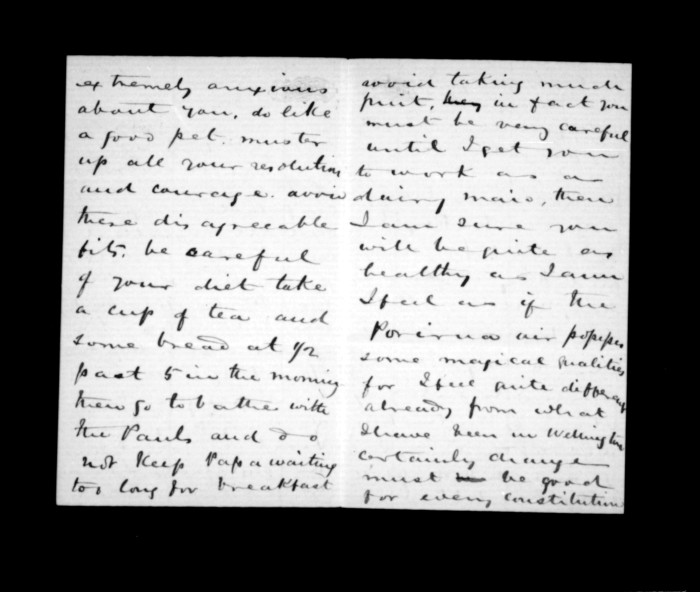 extremely anxious
about you, do like
a good pet. muster
up all your resolution
and courage. avoid
these disagreeable
fits. be careful
of your diet take
a cup of tea and
some bread at 1/2
past 5 in the morning
then go to bathe with
the Pauls and do
not keep Papa waiting
too long for breakfast
avoid taking much
fruit, in fact you
must be very careful
until I get you
to work as a
dairy maid, then
I am sure you
will be quite as
healthy as I am
I feel as if the
Porirua air
some magical qualities
for I feel quite different
already from what
I have been in Wellington
certainly change
must be good
for every constitution